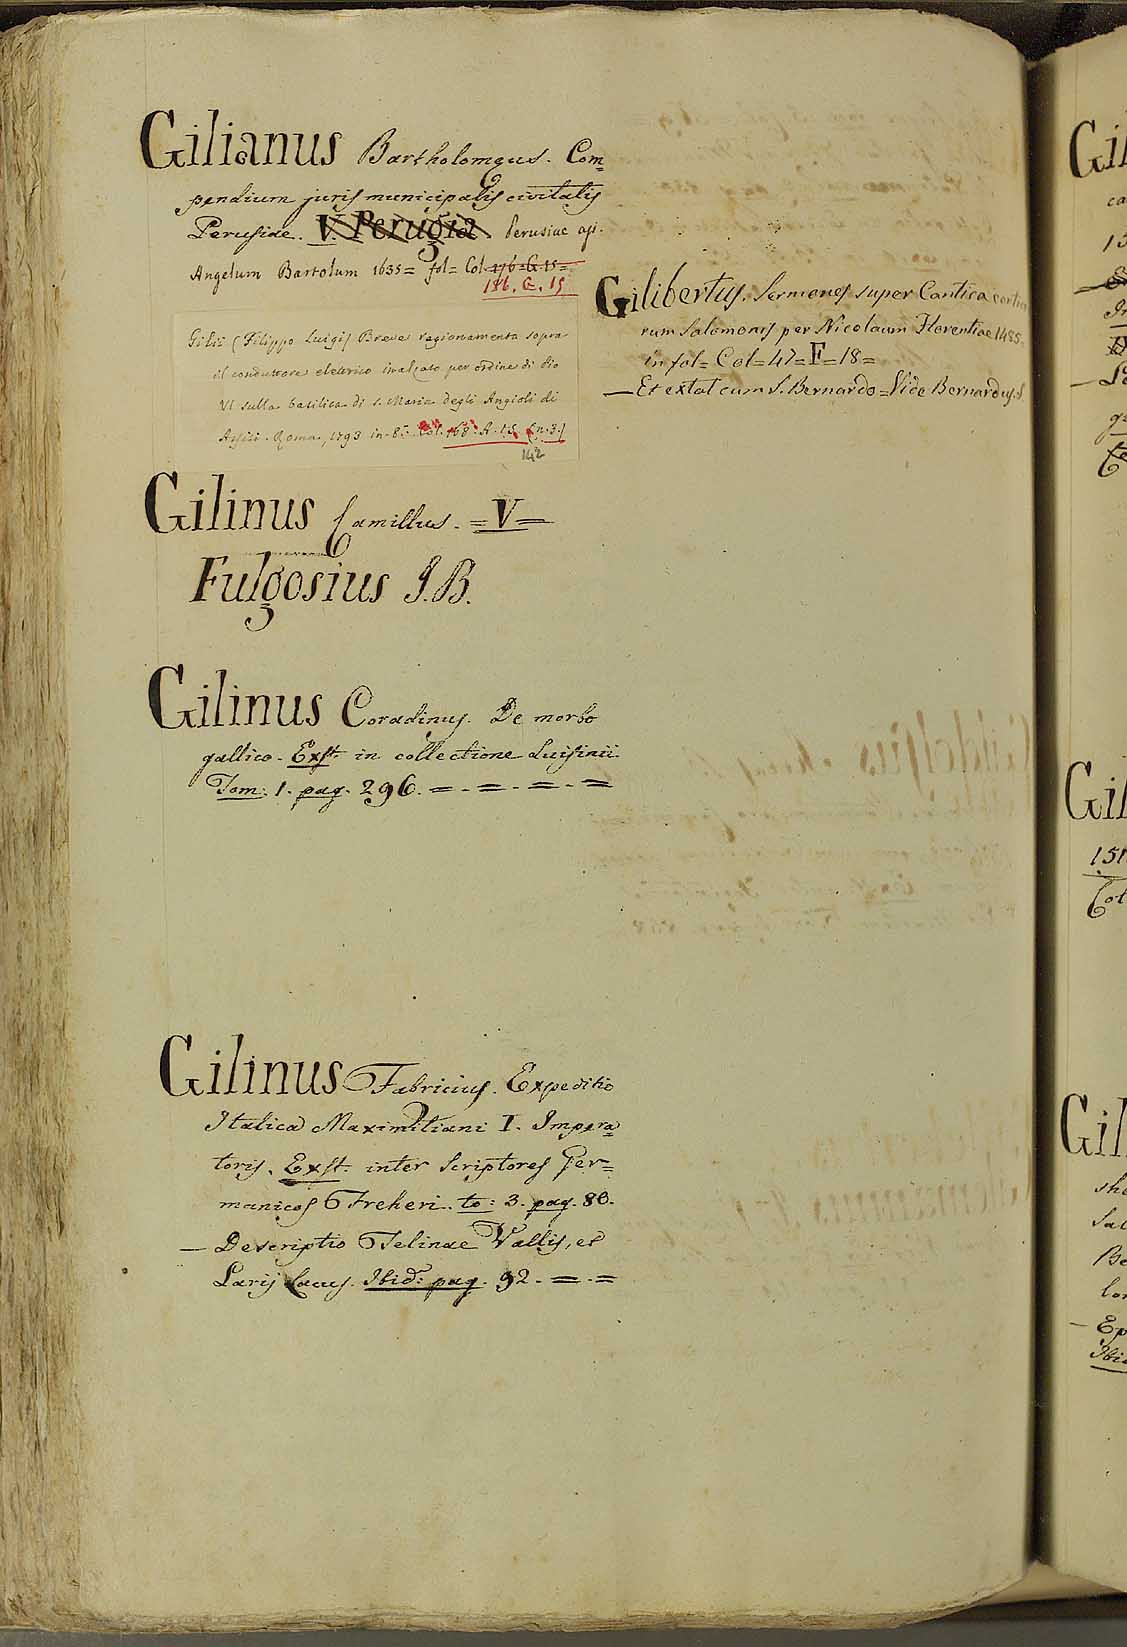 Gilianus Bartholomęus. Com=
pendium juris municipalis civitatis
Perusiae. V. Perugia. Perusiae ap.
Angelum Bartolum 1635= fol= Col 176=G.15=
Gilii (Filippo Luigi) Breve ragionamento sopra
il conduttore elettrico inalzato per ordine di Pio
VI sulla basilica di S. Maria degli Angioli di
Assisi. Roma, 1793 in-8.° Col. 168. A. 15 (n.3.)
142
Gilinus Camillus. =V=
Fulgosius J.B.
Gilinus Coradinus. De morbo
gallico. Exst. in collectione Luisinii
Tom: 1. pag. 296. = . = . = . =
Gilinus Fabricius. Expeditio
Italica Maximiliani I. Impera=
toris. Exst. inter Scriptores Ger=
manicos Freheri. to: 3. pag. 80.
— Descriptio Telinae Vallis, et
Larij Lacus. Ibid: pag. 92. = . =
Gilibertus. Sermones super Cantica cantico
rum Salomonis per Nicolaum Florentiae 1485=
in fol= Col=47=F=18=
— Et extat cum S. Bernardo=Vide Bernardus. S